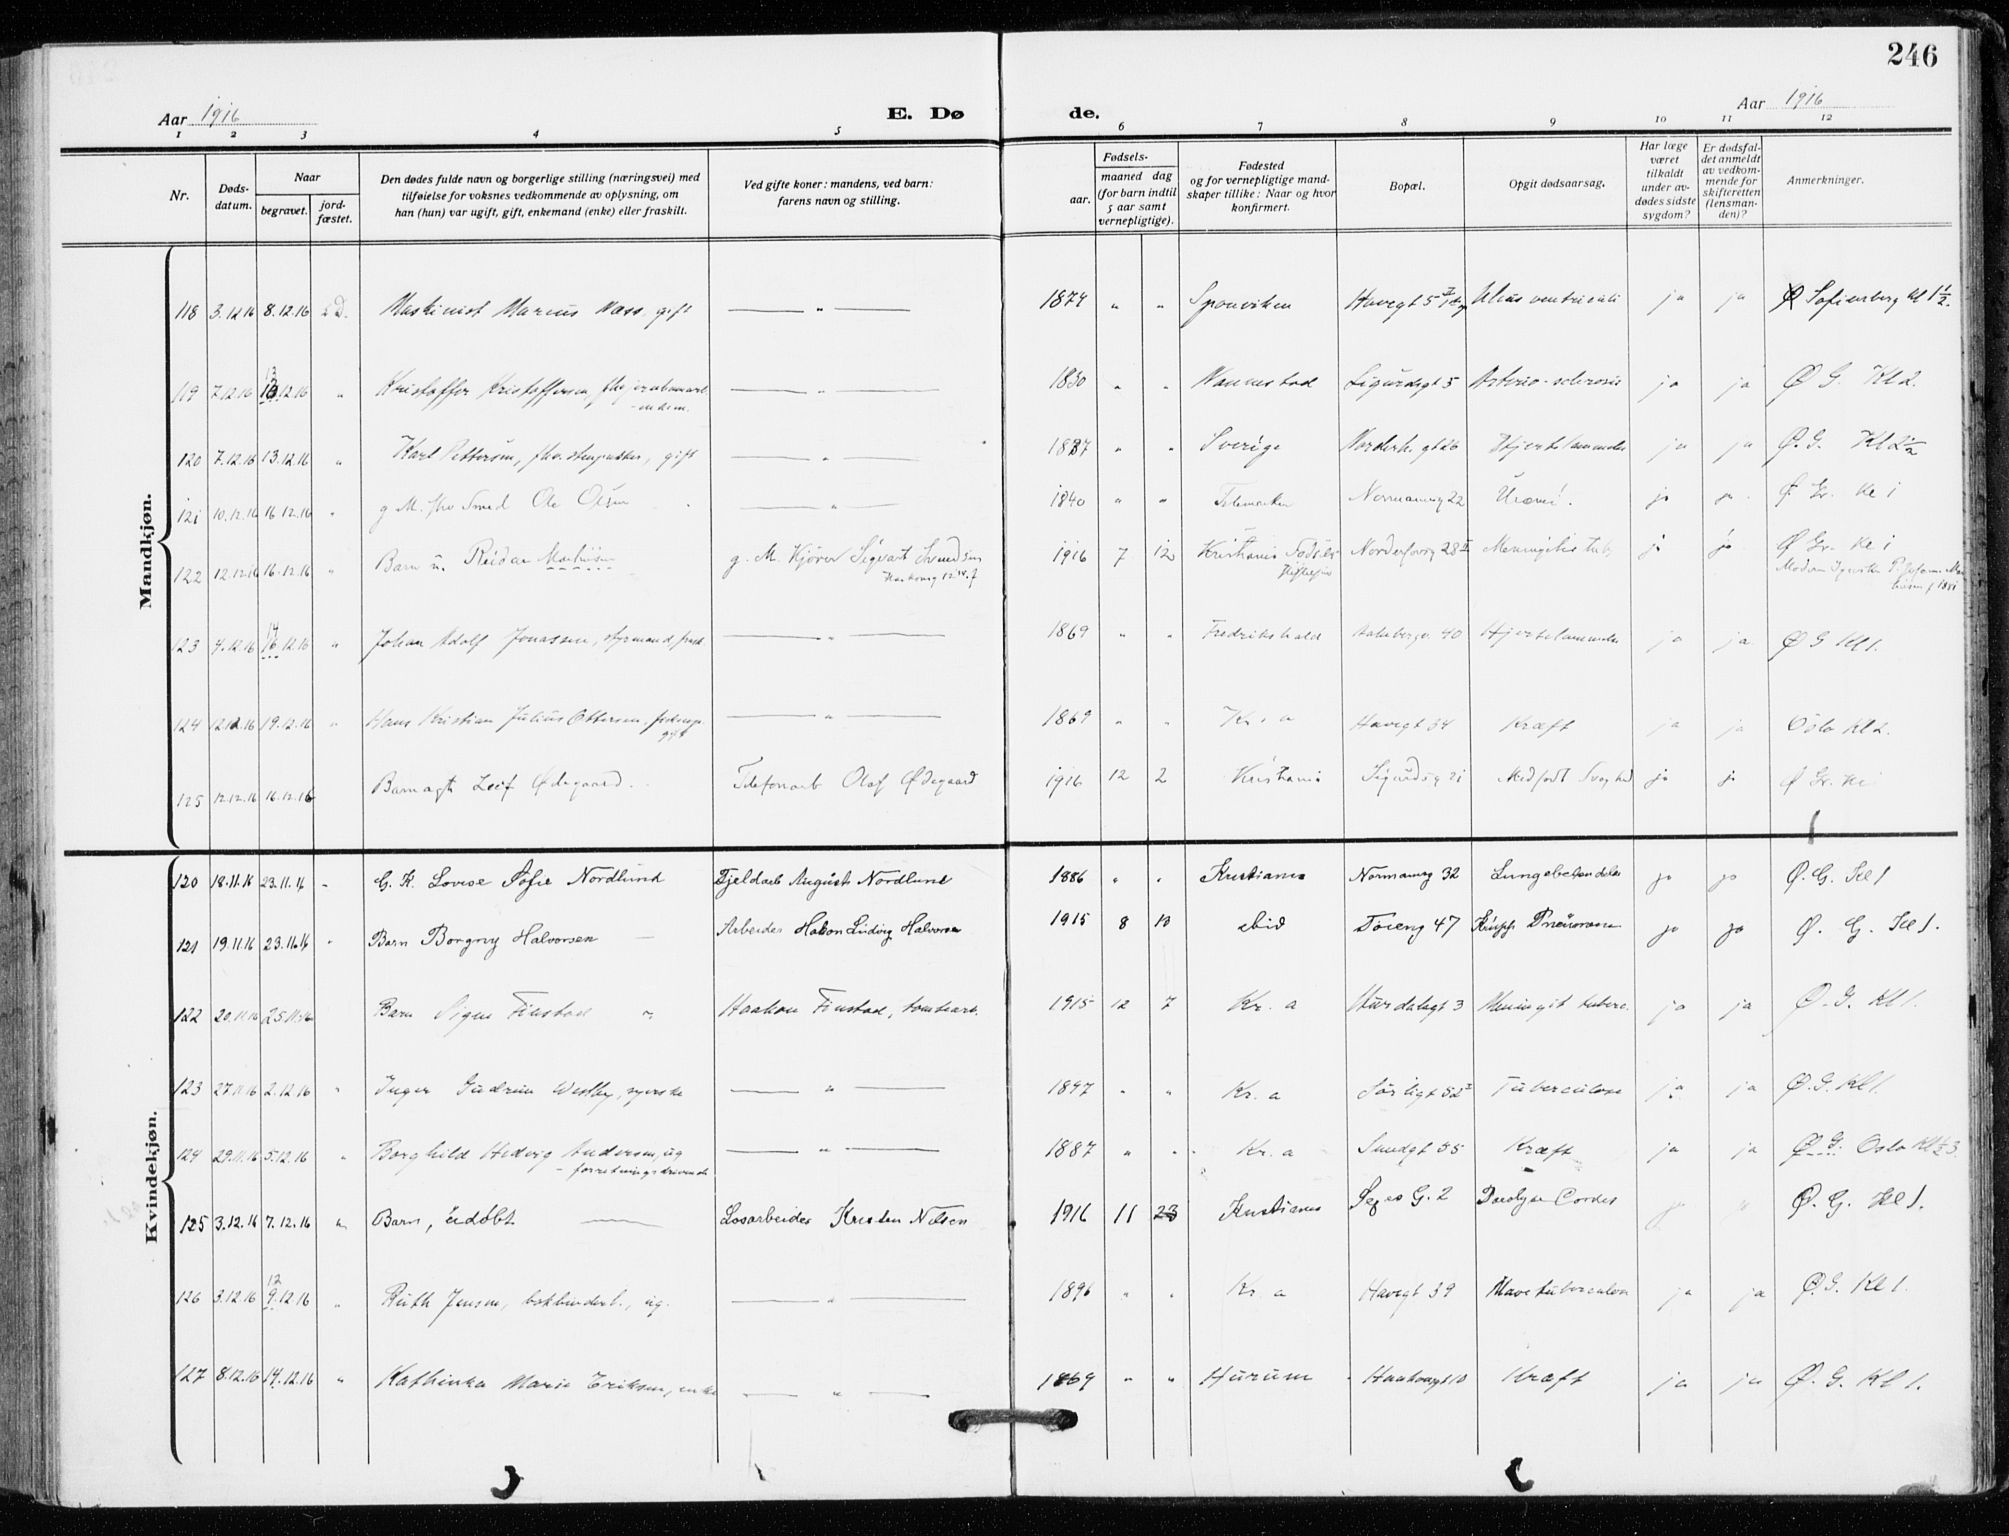 246
Aar 1916 E. Dø de. Aar 1916
1 2 3 4 5 6 7 8 9 10 11 12
Nr. Døds-datum. Naar begravet. jord-fæstet. Den dødes fulde navn og borgerlige stilling (næringsvei) med tilføielse for voksnes vedkommende av oplysning, om han (hun) var ugift, gift, enkemand (enke) eller fraskilt. Ved gifte koner: mandens, ved barn: farens navn og stilling. Fødsels- aar. maaned dag (for barn indtil 5 aar samt vernepligtige). Fødested og for vernepligtige mand-skaper tillike: Naar og hvor konfirmert. Bopæl. Opgit dødsaarsag. Har læge været tilkaldt under av-dødes sidste sygdom? Er dødsfal-det anmeldt av vedkom-mende for skifteretten (lensman-den)? Anmerkninger.
Mandkjøn.
118 3.12.16 8.12.16 Maskinist Marius Næss, gift — " — 1874 " " Sponviken Havegt 5 Ulcus ventriculi ja ja Sofienberg kl 1½.
119 7.12.16 13.12.16 " Kristoffer Kristoffersen, — " — 1830 " " Nannestad Sigurdsgt 5 Arterio-sclerosis ja ja Ø G. Kl 2.
120 7.12.16 13.12.16 " Karl Pettersen, gift — " — " " Sverige Norderh.gt 26 Hjertelammelse ja ja Ø. G. Kl 2½
121 10.12.16 16.12.16 " g. M. fhv Smed Ole Olsen — " — 1840 " " Telemarken Normannsg 22 Uræmi. ja ja Ø Gr. Kl 1
122 12.12.16 16.12.16 " Barn u. Reidar Mathisen g. M. Kjører Sigvart Svendsen 1916 7 12 Kristiania Fødsels Stiftelsen 28 II Meningitis Tub ja ja Ø Gr. Kl 1
123 4.12.16 16.12.16 " Johan Adolf Jonassen, styrmand, — " — 1869 " " Fredrikshald 40 Hjertelammelse ja ja Ø G Kl 1.
124 12.12.16 19.12.16 " Hans Kristian Julius Ottersen, gift — " — 1869 " " Kr. a Havegt 34 Kræft ja ja Oslo Kl 2.
125 12.12.16 16.12.16 Barn Leif Ødegaard Telefonarb Olaf Ødegaard 1916 12 2 Kristiania Sigurdsg 21 Medfødt Svaghed ja ja Ø Gr. Kl 1
Kvindekjøn.
120 18.11.16 23.11.16 " G. K. Lovise Sofie Nordlund August Nordlund 1886 " " Kristiania Normannsg 32 Lungebetændelse ja ja Ø. G. Kl 1
121 19.11.16 23.11.16 " Barn Borgny Halvorsen — Arbeider Hakon Ludvig Halvorsen 1915 8 13 ibid Tøieng 47 ja ja Ø. G. Kl 1.
122 20.11.16 25.11.16 Barn Signe Finstad " Haakon Finstad, 1915 12 7 Kr. a Hurdalsgt 3 Meningit tuberc. ja ja Ø. G. Kl 1.
123 27.11.16 2.12.16 " Inger Gudrun Westby, syerske — " — 1897 " " Kr. a Sørligt 52 Tuberculose ja ja Ø. G. Kl 1.
124 29.11.16 5.12.16 " Borghild Hedvig Andersen, ug - forretningsdrivende — " — 1887 " " Kr. a Sundgt 35 Kræft ja ja Ø. G. Oslo Kl
125 3.12.16 7.12.16 " Barn, udøbt — Løsarbeider Kristen Nilsen 1916 11 23 Kristiania G. 2 Paralyse Cordis ja " Ø. G. Kl 1.
126 3.12.16 9.12.16 " Ruth Jensen, bokbinderl., ug. — " — 1896 " " Kr. a Havegt 39 Mavetuberculose ja ja Ø. G. Kl 1.
127 8.12.16 14.12.16 " Kathinka Marie Eriksen, enke — " — 1869 " " Hurum Haakonsgt 10 Kræft ja ja Ø. G. Kl 1.